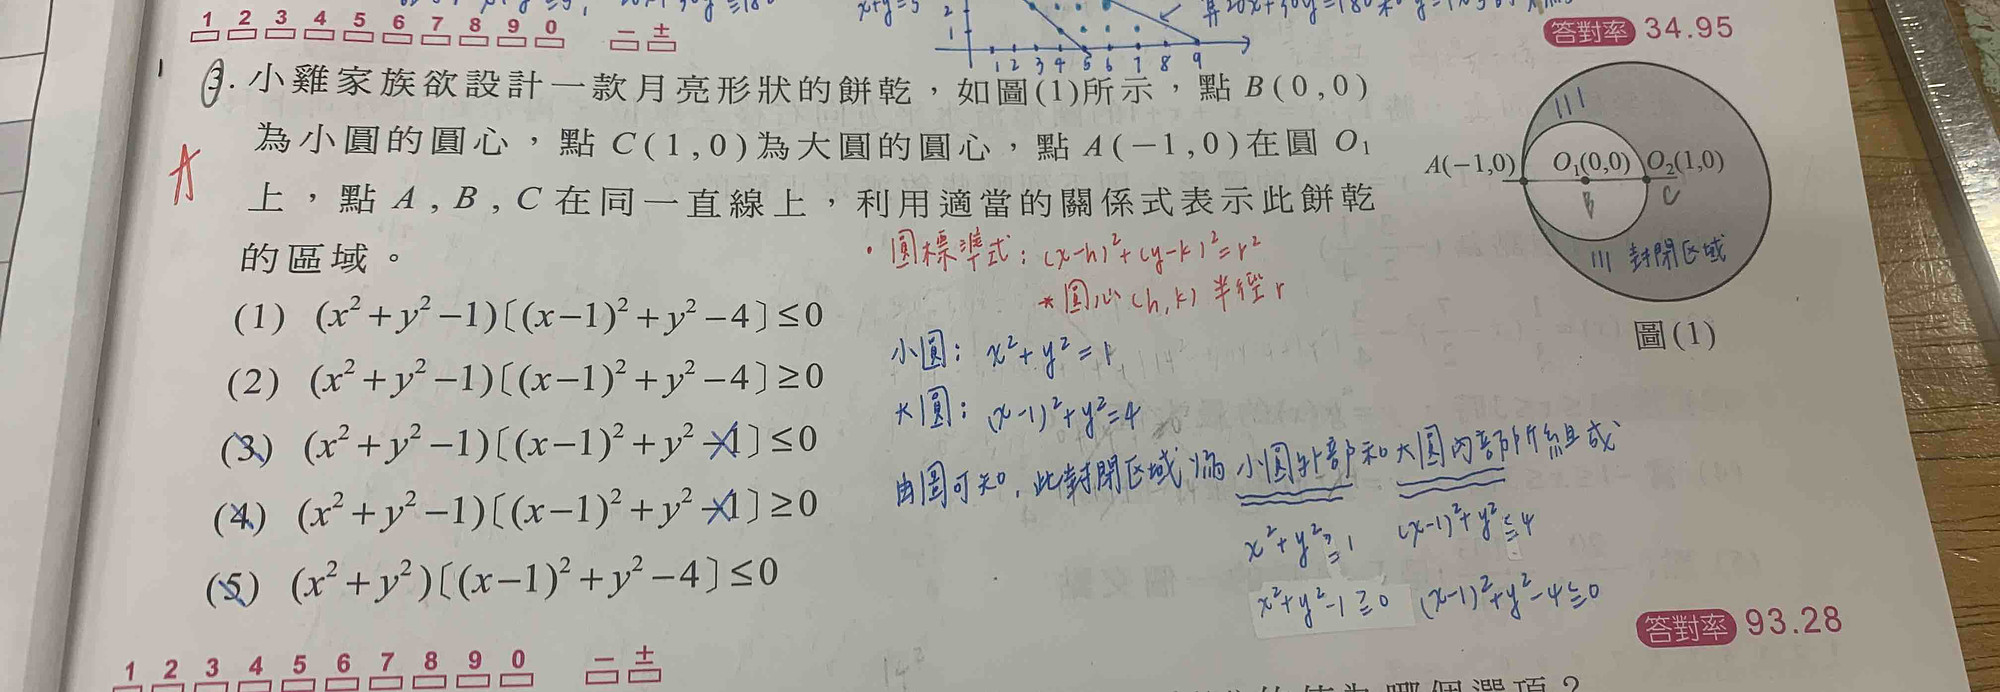 1 2 3 4 5 6 7 8 9 0 － ±
x+y=5
1 2 3 4 5 6 7 8 9
答對率 34.95
3. 小雞家族欲設計一款月亮形狀的餅乾，如圖(1)所示，點 B(0,0)
為小圓的圓心，點 C(1,0)為大圓的圓心，點 A(−1,0)在圓 O₁
上，點 A , B , C 在同一直線上，利用適當的關係式表示此餅乾
的區域。
A(−1,0) O₁(0,0) O₂(1,0)
B C
封閉区域
圖(1)
・圓標準式：(x-h)²+(y-k)²=r²
*圓心(h,k) 半徑r
(1) (x²+y²−1)〔(x−1)²+y²−4〕≤0
(2) (x²+y²−1)〔(x−1)²+y²−4〕≥0
(3) (x²+y²−1)〔(x−1)²+y²−1〕≤0
(4) (x²+y²−1)〔(x−1)²+y²−1〕≥0
(5) (x²+y²)〔(x−1)²+y²−4〕≤0
小圓：x²+y²=1
大圓：(x-1)²+y²=4
由圖可知，此封閉区域為小圓外部和大圓內部所組成
x²+y²≧1 (x-1)²+y²≦4
x²+y²-1≧0 (x-1)²+y²-4≦0
答對率 93.28
1 2 3 4 5 6 7 8 9 0 － ±